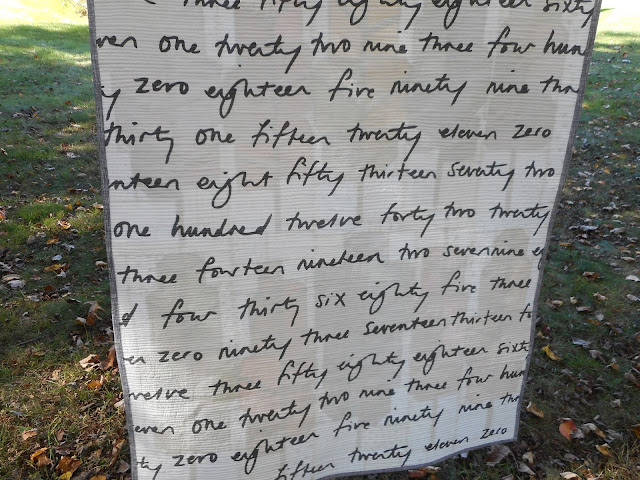 three fifty eighty eighteen sixty
ven one twenty two nine three four hun
y zero eighteen five ninety nine thr
thirty one fifteen twenty eleven zero
nteen eight fifty thirteen seventy two
one hundred twelve forty two twenty
three fourteen nineteen two seven nine e
d four thirty six eighty five three
en zero ninety three seventeen thirteen fo
welve three fifty eighty eighteen sixt
even one twenty two nine three four hun
ty zero eighteen five ninety nine thr
fifteen twenty eleven zero